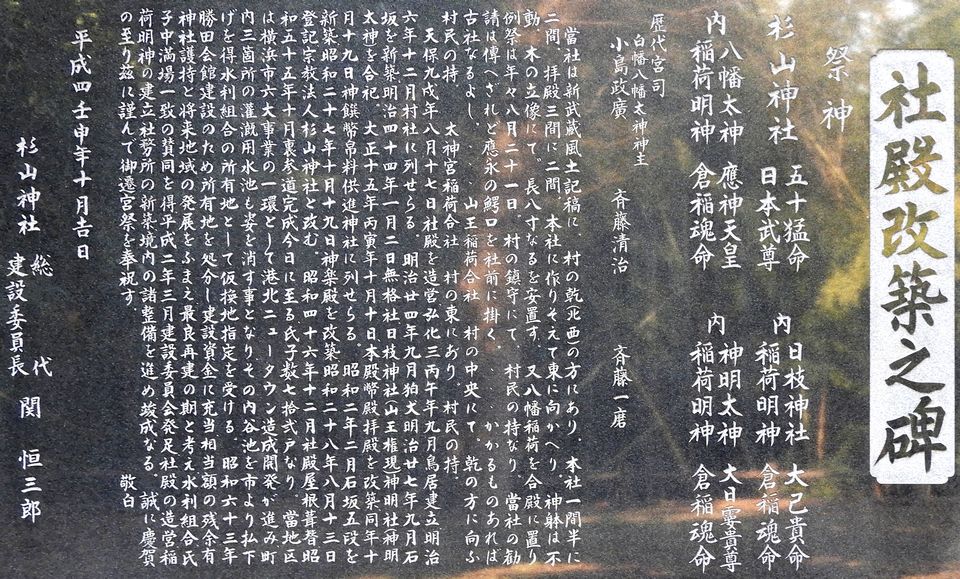 社殿改築之碑
祭神
杉山神社 五十猛命 日本武尊 内 日枝神社 大己貴命 稲荷明神 倉稲魂命
内 八幡太神 應神天皇 稲荷明神 倉稲魂命 内 神明太神 大日孁貴尊 稲荷明神 倉稲魂命
歴代宮司
白幡八幡太神神主
小島政廣 斉藤清治 斉藤一磨
當社は新武蔵風土記稿に、村の乾(北西)の方にあり、本社一間半に
二間、拝殿三間に二間、本社に作りそえて東に向かへり、神躰は不
動、木の立像にて。長八寸なるを安置す、又八幡稲荷を合殿に置り
例祭は年々八月二十一日、村の鎮守にて、村民の持なり、當社の勧
請は傳へざれど應永の鰐口を社前に掛く、、かかるものあれば
古社なるよし、、、山王稲荷合社 村の中央にて、乾の方に向ふ
村民の持、 太神宮稲荷合社 村の東にあり、村民の持、
天保九戌年八月十七日社殿を造営弘化三丙午年九月鳥居建立明治
六年十二月村社に列せらる。明治廿四年九月狛犬明治廿七年九月石
坂を新築明治四十四年一月二日無格社日枝神社(山王権現)神明社(神明
太神)を合祀 大正十五年丙寅年十月十日本殿幣殿拝殿を改築同年十
月十九日神饌幣帛料供進神社に列せらる。昭和二年二月石坂五段を
新築昭和二十七年十月十九日神楽殿を改築昭和二十八年八月十三日
登記宗教法人杉山神社と改む。昭和四十六年十二月社殿屋根葺替昭
和五十五年十月東参道完成今日に至る氏子数七拾弐戸なり、當地区
は横浜市六大事業の一環として港北ニュータウン造成開発が進み町
内三箇所の灌漑用水池も姿を消す事となりその内谷池を市より払下
げを得水利組合の所有地として仮換地指定を受ける。昭和六十三年
勝田会館建設のため所有地を処分し建設資金に充当相当額の残余有
神社護持と将来地域の発展をふまえ最良再建の期と考え水利組合氏
子中満場一致の賛同を得平成二年三月建設委員会発足社殿の造営稲
荷明神の建立社務所の新築境内の諸整備を進め竣成なる。誠に慶賀
の至り茲に謹んで御遷宮祭を奉祝す。 敬白
平成四壬申年十月吉日
杉山神社 総代 建設委員長 関恒三郎